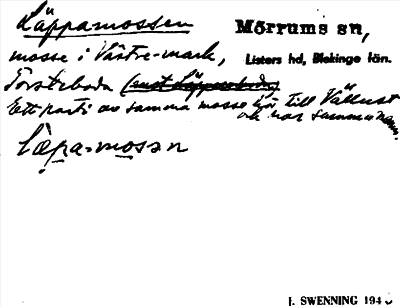 Läppamossen
Mörrums sn,
mosse i Västre-mark,
Listers hd, Blekinge län.
Torsteboda
Ett parti av samma mosse hör till Vällust
och har samma namn.
Læpa-mosan
J. SWENNING 194